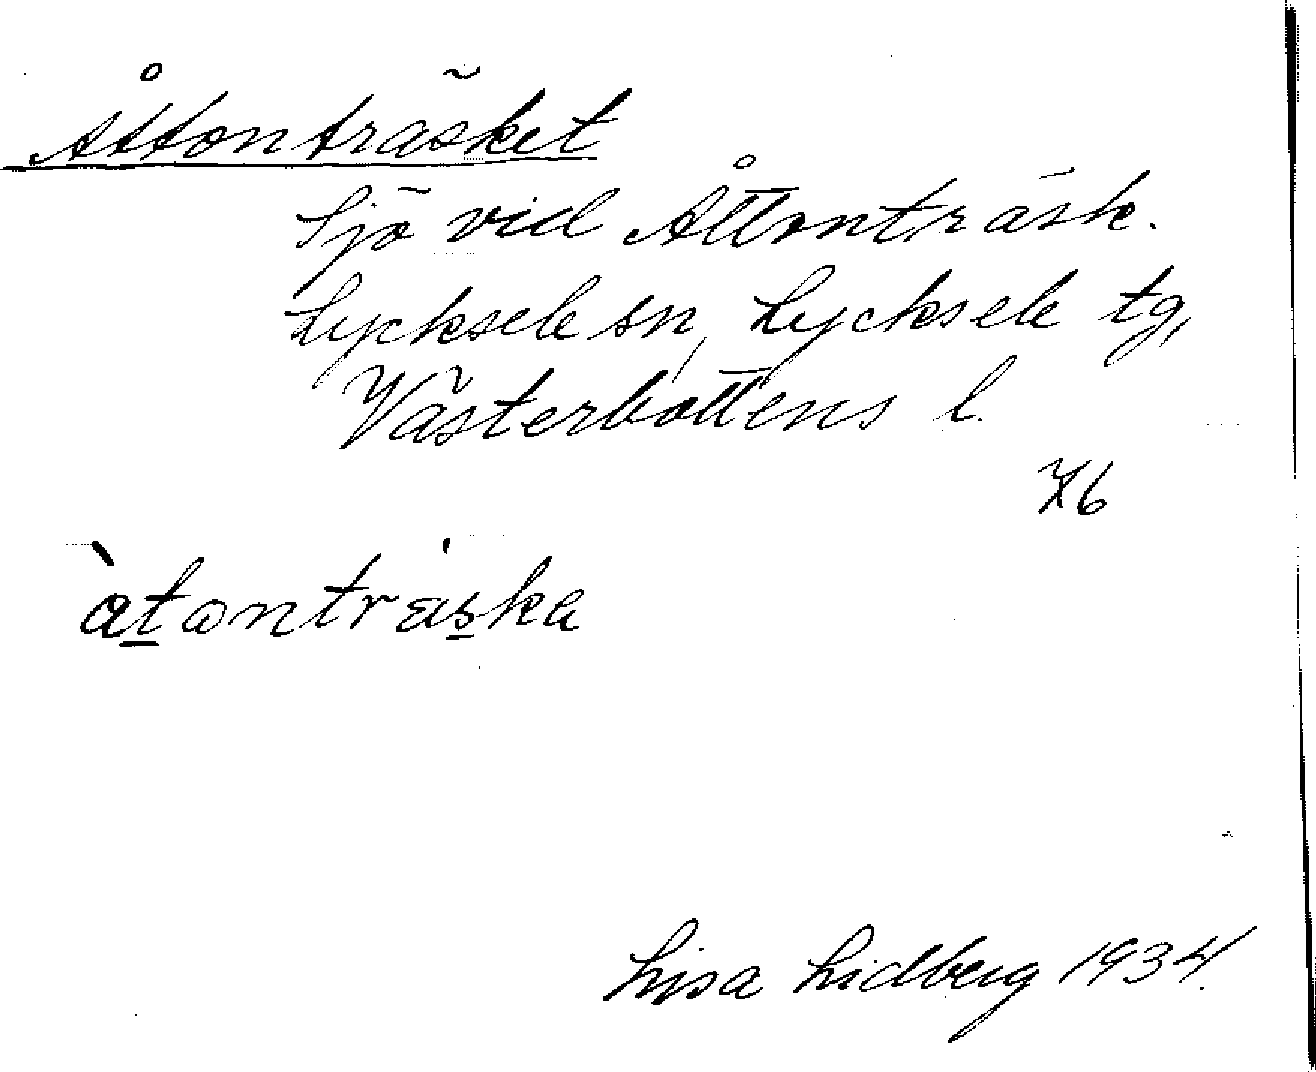 Åttonträsket
Sjö vid Åttonträsk.
Lycksele sn, Lycksele tg,
Västerbottens l.
76
àtonträ́ska
Lisa Lidberg 1934.